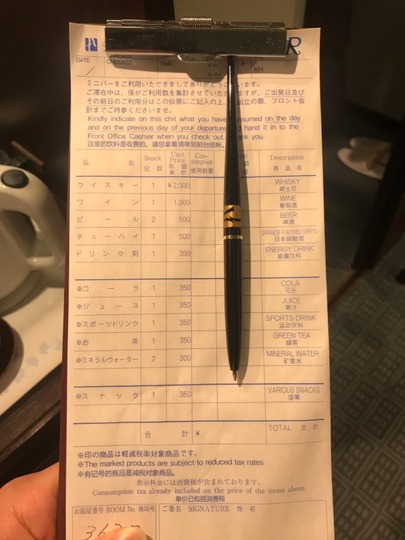 DATE
ミニバーをご利用いただきましてありがとうございます。
ご滞在中は、係がご利用数を集計させていただきますが、ご出発日及び
その前日のご利用分はこの伝票にご記入の上、お出立の際、フロント会
計までご持参くださいませ。
Kindly indicate on this chit what you have consumed on the day
and on the previous day of your departure and hand it in to the
Front Office Cashier when you check out. Thank you.
品 名 Stock 定数 Unit Price 単価 Con-sumption 使用数量 Description 商品名
ウイスキー 1 ¥2,000 WHISKY 威士忌
ワイン 1 1,000 WINE 葡萄酒
ビール 2 500 BEER 啤酒
チューハイ 1 500 JAPANESE FLAVORED SPIRITS 日本碳酸酒
ドリンク剤 1 350 ENERGY DRINK 能量饮料
※コーラ 1 350 COLA 可乐
※ジュース 1 350 JUICE 果汁
※スポーツドリンク 1 350 SPORTS DRINK 运动饮料
※お茶 1 350 GREEN TEA 绿茶
※ミネラルウォーター 2 300 MINERAL WATER 矿泉水
※スナック 1 350 VARIOUS SNACKS 坚果
合計 ¥ TOTAL
※印の商品は軽減税率対象商品です。
※The marked products are subject to reduced tax rates
※有记号的商品是减税对象商品。
表示料金には消費税が含まれております。
Consumption tax already included on the price of the items above
单价已包括消费税
お部屋番号 ROOM No. 房间号 ご署名 SIGNATURE 姓名